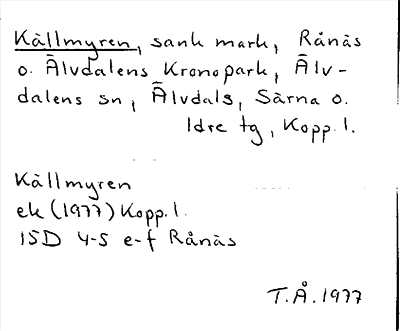 Källmyren, sank mark, Rånäs
o. Älvdalens Kronopark, Älv-
dalens sn, Älvdals, Särna o.
Idre tg, Kopp. l.
Källmyren
ek (1977) Kopp. l.
15D 4-5 e-f Rånäs
T.Å. 1977